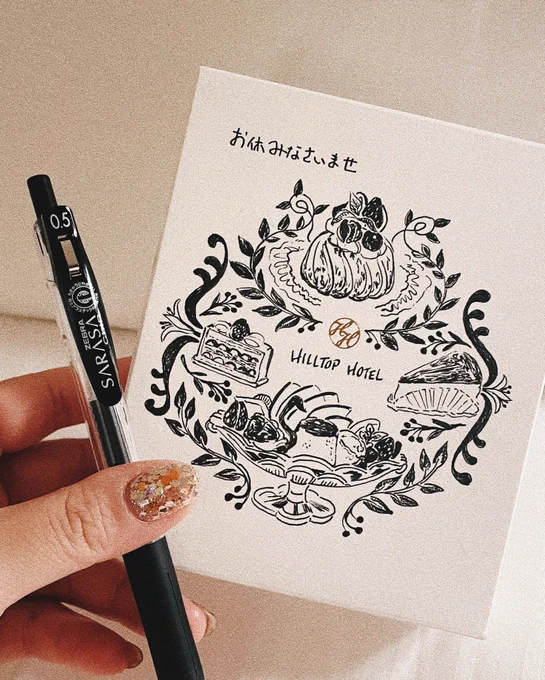 お休みなさいませ
HH
HILLTOP HOTEL
0.5
ZEBRA
SARASA